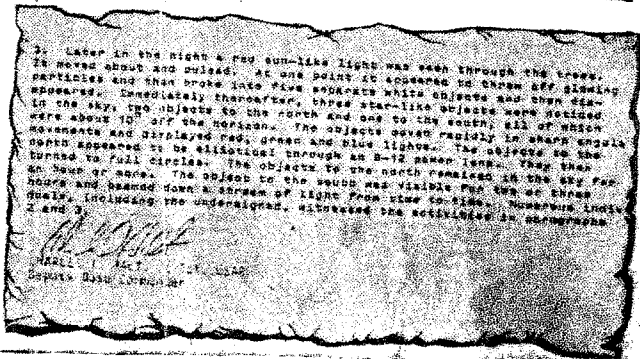 3. Later in the night a red sun-like light was seen through the trees.
It moved about and pulsed. At one point it appeared to throw off glowing
particles and then broke into five separate white objects and then dis-
appeared. Immediately thereafter, three star-like objects were noticed
in the sky, two objects to the north and one to the south, all of which
were about 10° off the horizon. The objects moved rapidly in sharp angula
movements and displayed red, green and blue lights. The objects to the
north appeared to be elliptical through an 8-12 power lens. They then
turned to full circles. The objects to the north remained in the sky for
an hour or more. The object to the south was visible for two or three
hours and beamed down a stream of light from time to time. Numerous indiv
duals, including the undersigned, witnessed the activities in paragraphs
2 and 3.
Deputy Base Commander